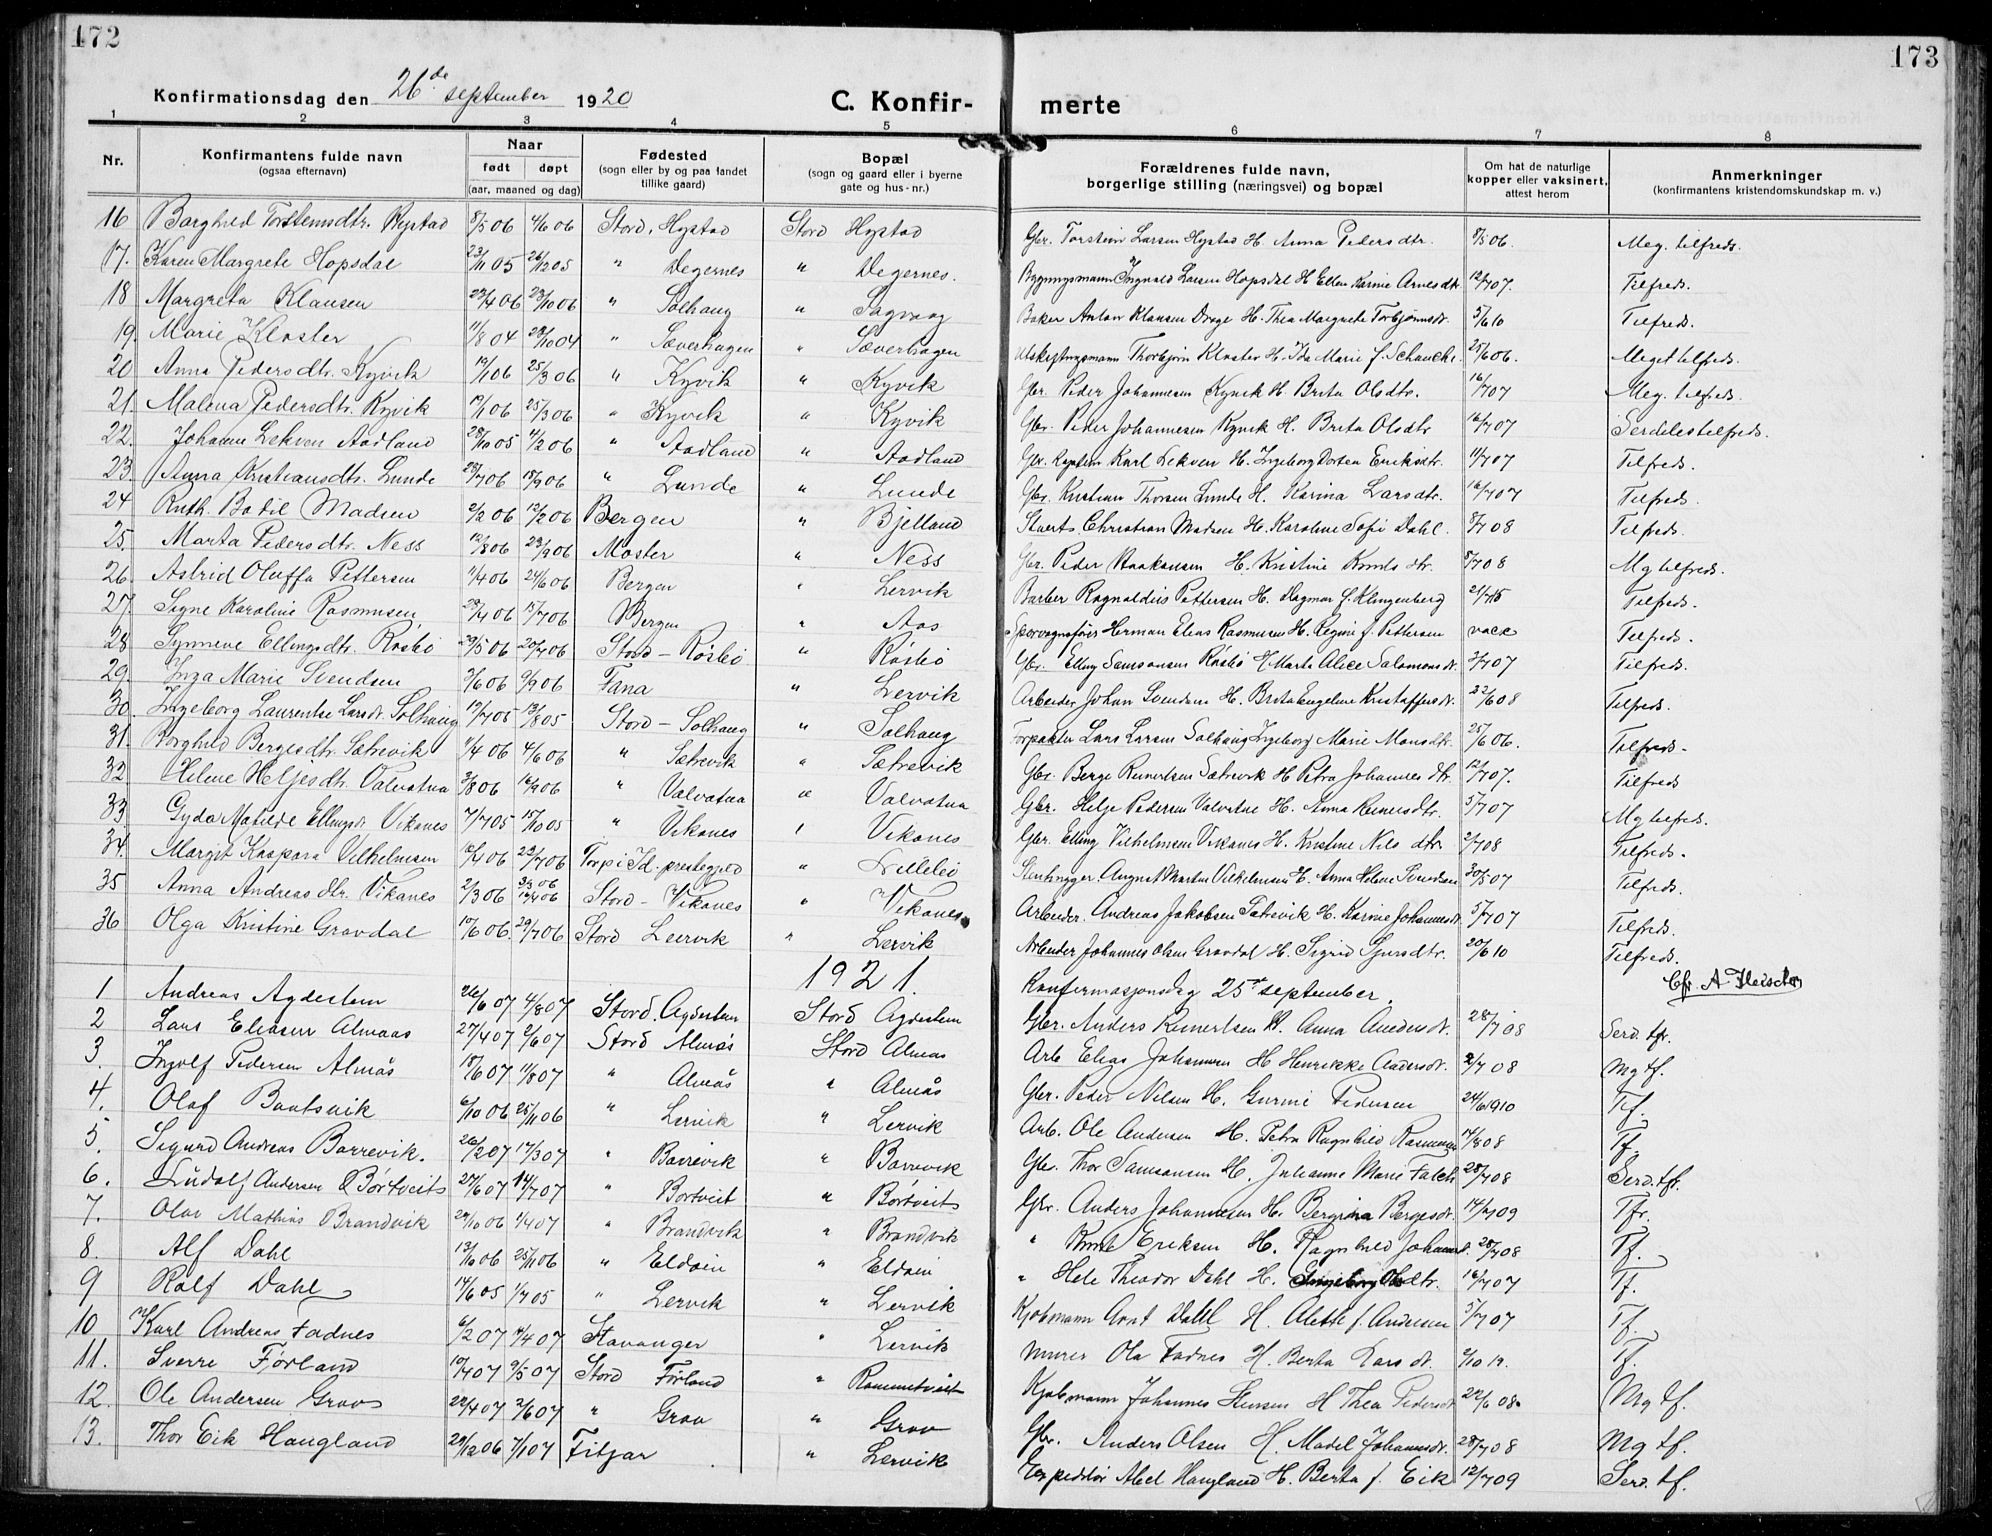 172
173
Konfirmationsdag den 26de september 1920
C. Konfirmerte
1 2 3 4 5 6 7 8
Nr. | Konfirmantens fulde navn (ogsaa efternavn) | Naar født døpt (aar, maaned og dag) | Fødested (sogn eller by og paa landet tillike gaard) | Bopæl (sogn og gaard eller i byerne gate og hus-nr.) | Forældrenes fulde navn, borgerlige stilling (næringsvei) og bopæl | Om hat de naturlige kopper eller vaksinert, attest herom | Anmerkninger (konfirmantens kristendomskundskap m. v.)
16 Borghild Torsteinsdtr. Hystad 8/5 06 4/6 06 Stord, Hystad Stord Hystad Gbr. Torstein Larsen Hystad H. Anna Pedersdtr. 8/5 06. Meg. tilfreds.
17. Karen Margrete Hopsdal 23/11 05 26/12 05 " Degernes " Degernes. Bygningsmann Ingvald Larsen Hopsdal H Ellen Karine Arnesdtr 12/7 07. Tilfreds.
18 Margreta Klausen 29/4 06 28/10 06 " Solhaug " Sagvaag Baker Anton Klausen Drage H. Thea Margrete Torbjørnsdt. 5/6 10 Tilfreds.
19. Marie Kloster 11/8 04 23/10 04 " Sæverhagen " Sæverhagen Utskiftningsmann Thorbjørn Kloster H. Ida Marie f. Schancke 25/6 06. Meget tilfreds.
20 Anna Pedersdtr. Kyvik 19/1 06 25/3 06 " Kyvik " Kyvik Gbr. Peder Johannesen Kyvik H. Brita Olsdtr. 16/7 07 Meg. tilfreds.
21. Malena Pedersdtr. Kyvik 19/1 06 25/3 06 " Kyvik " Kyvik Gbr. Peder Johannesen Kyvik H. Brita Olsdtr 16/7 07 Serdeles tilfreds.
22. Johanne Lekven Aadland 28/10 05 4/2 06 " Aadland " Aadland Gbr. Kaptein Karl Lekven H. Ingeborg Dortea Eriksdtr. 11/7 07 Tilfreds.
23. Anna Kristiansdtr. Lunde 23/7 06 15/9 06 " Lunde " Lunde Gbr. Kristian Thorsen Lunde H. Karina Larsdtr. 16/7 07 Tilfreds.
24 Ruth Bodil Madsen 2/2 06 12/2 06 Bergen " Bjelland Stuerts Christian Madsen H. Karoline Sofi Dahl. 8/7 08 Tilfreds.
25. Marta Pedersdtr. Ness 12/8 06 23/9 06 Moster " Ness Gbr. Peder Haakonsen H. Kristine Knutsdtr. 8/7 08 Mg tilfreds.
26. Astrid Oluffa Pettersen 11/4 06 24/6 06 Bergen " Lervik Barber Ragnaldius Pettersen H. Dagmar f. Klingenberg Tilfreds.
27. Signe Karoline Rasmusen 15/7 06 Bergen " Aas Sporvognsfører Herman Elias Rasmusen H. Regine f. Pettersen vacc Tilfreds.
28 Synneve Ellingsdtr. Røsbø 29/5 06 20/7 06 Stord - Røsbø " Røsbø Gbr. Elling Samsonsen Røsbø H Marta Alice Salomonsdt. 2/7 07 Tilfreds.
29. Inga Marie Svendsen 3/6 06 9/9 06 Fana " Lervik Arbeider Johan Svendsen H. Brita Engeline Kristoffersdt. 22/6 08 Tilfreds.
30. Ingeborg Laurentse Larsdt. Solhaug 19/7 05 13/8 05 Stord - Solhaug " Solhaug Forpakter Lars Larsen Solhaug Ingeborg Marie Monsdtr. 25/6 06. Tilfreds.
31. Borghild Bergesdtr. Sætrevik 11/4 06 4/6 06 " Sætrevik " Sætrevik Gbr. Berge Reinertsen Sætrevik H Petra Johannesdtr. 12/7 07. Tilfreds
32 Helene Heljesdtr. Valvatna 3/8 06 16/9 06 " Valvatna " Valvatna Gbr. Helje Pedersen Valvatne H. Anna Reinersdtr. 5/7 07 Mg tilfreds.
33 Gyda Matilde Ellingsdt. Vikanes 7/7 05 15/10 05 " Vikanes " Vikanes Gbr. Elling Vilhelmsen Vikanes H. Kristine Nilsdtr. 2/7 08 Tilfreds.
34. Margit Kaspara Vilhelmsen 16/4 06 29/7 06 Torp i Id. prestegjeld " Litlebø Stenhugger. August Martin Vilhelmsen H. Anna Helene Svendsen 30/5 07 Tilfreds.
35 Anna Andreasdtr. Vikanes 2/3 06 3/3 06 16/4 06 Stord - Vikanes " Vikanes Arbeider. Andreas Jakobsen Sætrevik H. Karine Johannesdt. 5/7 07 Tilfreds.
36 Olga Kristine Gravdal 10/6 06. 29/7 06 Stord Leervik " Lervik Arbeider Johannes Olsen Gravdal H. Sigrid Sjursdtr. 20/6 10 Tilfreds.
1921. Konfirmasjonsdag 25de september. Chr. A. Fleischer
1 Andreas Agdestein 26/6 07 4/8 07 Stord. Agdestein Stord Agdestein Gbr. Anders Reinertsen H. Anna Andersdt. 28/7 08 Serd. tfr.
2 Lars Eliasen Almaas 27/4 07 2/6 07 Stord Almås Stord Almås Arb Elias Johannesen H Henrikke Andersdt. 2/7 08 Mg tf.
3. Ingolf Pedersen Almås 18/6 07 11/8 07 " Almås " Almås Gbr. Peder Nilsen H. Gurine Pedersen 24/6 1910 Tf.
4. Olaf Baatsvik 6/10 06 25/11 06 " Lervik " Lervik Arb. Ole Andersen H. Petra Ragnhild Rasmussen 14/8 08 Tf.
5. Sigurd Andreas Barrevik. 26/2 07 17/3 07 " Barrevik " Barrevik Gbr. Thor Samsonsen H. Julianne Marie Falch 28/7 08 Serd. tfr.
6. Ludolf Andersen Børtveit 27/6 07 14/7 07 " Børtveit " Børtveit Gbr. Anders Johannesen H. Bergina Bergesdt. 14/7 09 Tfr.
7. Olav Mathias Brandvik 29/10 06 1/4 07 " Brandvik " Brandvik " Knut Eriksen H. Ragnhild Johannesdt. 28/7 08 Tf.
8. Alf Dahl 13/10 06 25/11 06 " Eldøin " Eldøin " Hele Theodor Dahl H. Ingeborg Olsdtr. 16/7 07 Tf.
9 Rolf Dahl 14/6 05 1/7 05 " Lervik " Lervik Kjøbmann Arnt Dahl H. Alette f. Andersen 5/7 07 Tf.
10 Karl Andreas Fadnes 6/2 07 4/4 07 Stavanger " Lervik Murer Ola Fadnes H. Berta Larsdt. Tf.
11. Sverre Førland 10/4 07 9/5 07 Stord Førland " Rommetveit Kjøbmann Johannes Stensen H Thea Pedersdt 22/6 08. Mg tf.
12. Ole Andersen Grov 22/4 07 2/6 07 " Grov " Grov Gbr. Anders Olsen H. Madel Johannesdt. 28/7 08 Mg tf.
13. Thor Eik Haugland 29/12 06 7/1 07 Fitjar " Lervik Expeditør Abel Haugland H. Berta f. Eik 12/7 09 Serd. tf.